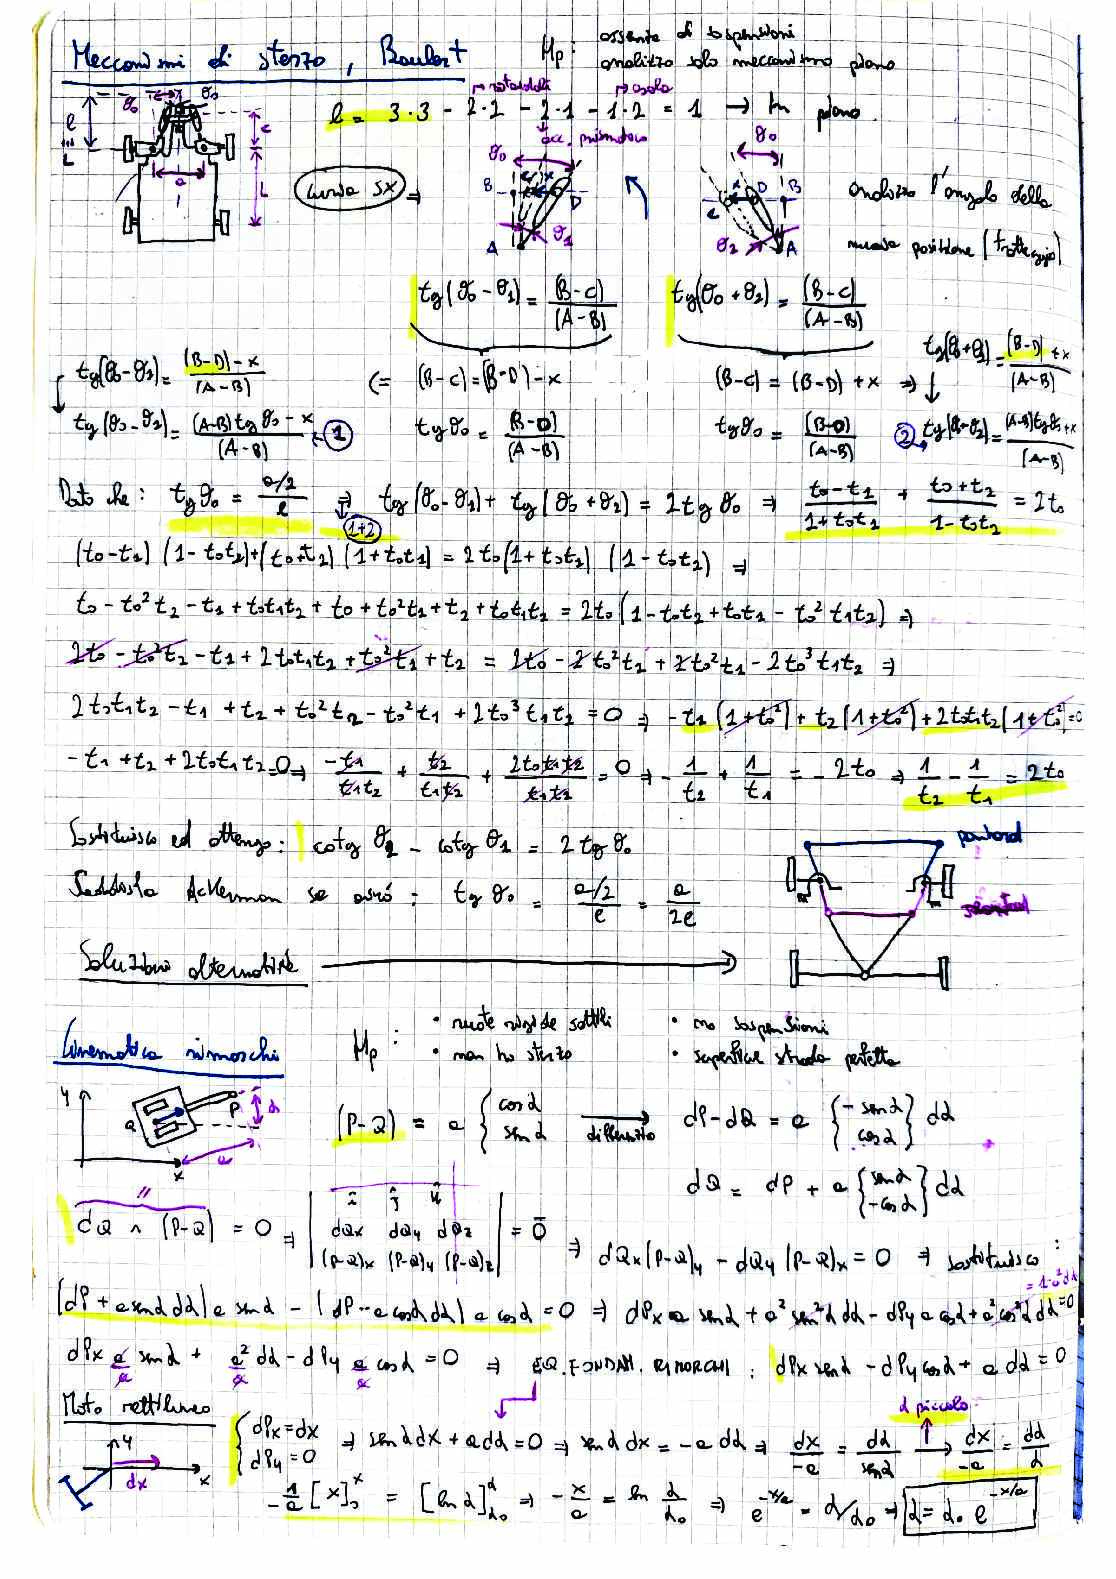 Meccanismi di sterzo, Boulart
Hp: assenza di sospensioni
analizzo solo meccanismo piano
→ rotoidali → asola
l = 3·3 - 2·2 - 2·1 - 1·2 = 1 → In piano
acc. prismatico
curva SX ⇒
analizzo l'angolo della
nuova posizione (tratteggio)
tg(θ0 - θ1) = (B-C)/(A-B) tg(θ0 + θ2) = (B-C)/(A-B)
tg(θ0 - θ1) = ((B-D) - x)/(A-B) ⇐ (B-C) = (B-D) - x (B-C) = (B-D) + x ⇒ tg(θ0+θ2) = ((B-D) + x)/(A-B)
tg(θ0 - θ2) = ((A-B) tg θ0 - x)/(A-B) ① tg θ0 = (B-D)/(A-B) tg θ0 = (B-D)/(A-B) ② tg(θ0-θ2) = ((A-B) tg θ0 + x)/(A-B)
Dato che: tg θ0 = (a/2)/e ⇒ tg(θ0 - θ1) + tg(θ0 + θ2) = 2 tg θ0 ⇒ (t0 - t1)/(1 + t0t1) + (t0 + t2)/(1 - t0t2) = 2t0
1+2
(t0 - t1)(1 - t0t2) + (t0 + t2)(1 + t0t1) = 2t0(1 + t0t2)(1 - t0t2) ⇒
t0 - t0²t2 - t1 + t0t1t2 + t0 + t0²t1 + t2 + t0t1t2 = 2t0(1 - t0t2 + t0t1 - t0²t1t2) ⇒
2t0 - t0²t2 - t1 + 2t0t1t2 + t0²t1 + t2 = 2t0 - 2t0²t2 + 2t0²t1 - 2t0³t1t2 ⇒
2t0t1t2 - t1 + t2 + t0²t2 - t0²t1 + 2t0³t1t2 = 0 ⇒ -t1(1+t0²) + t2(1+t0²) + 2t0t1t2(1+t0²) = 0
-t1 + t2 + 2t0t1t2 = 0 ⇒ -t1/(t1t2) + t2/(t1t2) + 2t0t1t2/(t1t2) = 0 ⇒ -1/t2 + 1/t1 = -2t0 ⇒ 1/t2 - 1/t1 = 2t0
Sostituisco ed ottengo: cotg θ2 - cotg θ1 = 2 tg θ0
Soddisfa Ackerman se avrò: tg θ0 = (a/2)/e = a/2e
Soluzioni alternative →
Cinematica rimorchi Hp: • ruote rigide sottili • no sospensioni
• non ho sterzo • superficie strada perfetta
(P-Q) = a {cos α, sin α} → differenzio dP - dQ = a {-sen α, cos α} dα
dQ = dP + a {sen α, -cos α} dα
//
dQ ∧ (P-Q) = 0 ⇒ | î ĵ k̂ ; dQx dQy dQz ; (P-Q)x (P-Q)y (P-Q)z | = 0̄ ⇒ dQx(P-Q)y - dQy(P-Q)x = 0 ⇒ sostituisco:
= 1·a²dα
(dP + a sen α dα) a sin α - (dP - a cos α dα) a cos α = 0 ⇒ dPx a sin α + a² sin²α dα - dPy a cos α + a² cos²α dα = 0
dPx a sin α + a² dα - dPy a cos α = 0 ⇒ EQ. FONDAM. RIMORCHI: dPx sen α - dPy cos α + a dα = 0
Moto rettilineo
{dPx = dx, dPy = 0 ⇒ sen α dx + a dα = 0 ⇒ sen α dx = -a dα ⇒ dx/-a = dα/sen α → dx/-a = dα/α
α piccolo
-1/a [x]₀ˣ = [ln α]α0^α ⇒ -x/a = ln α/α0 ⇒ e^(-x/a) = α/α0 ⇒ α = α0 e^(-x/a)